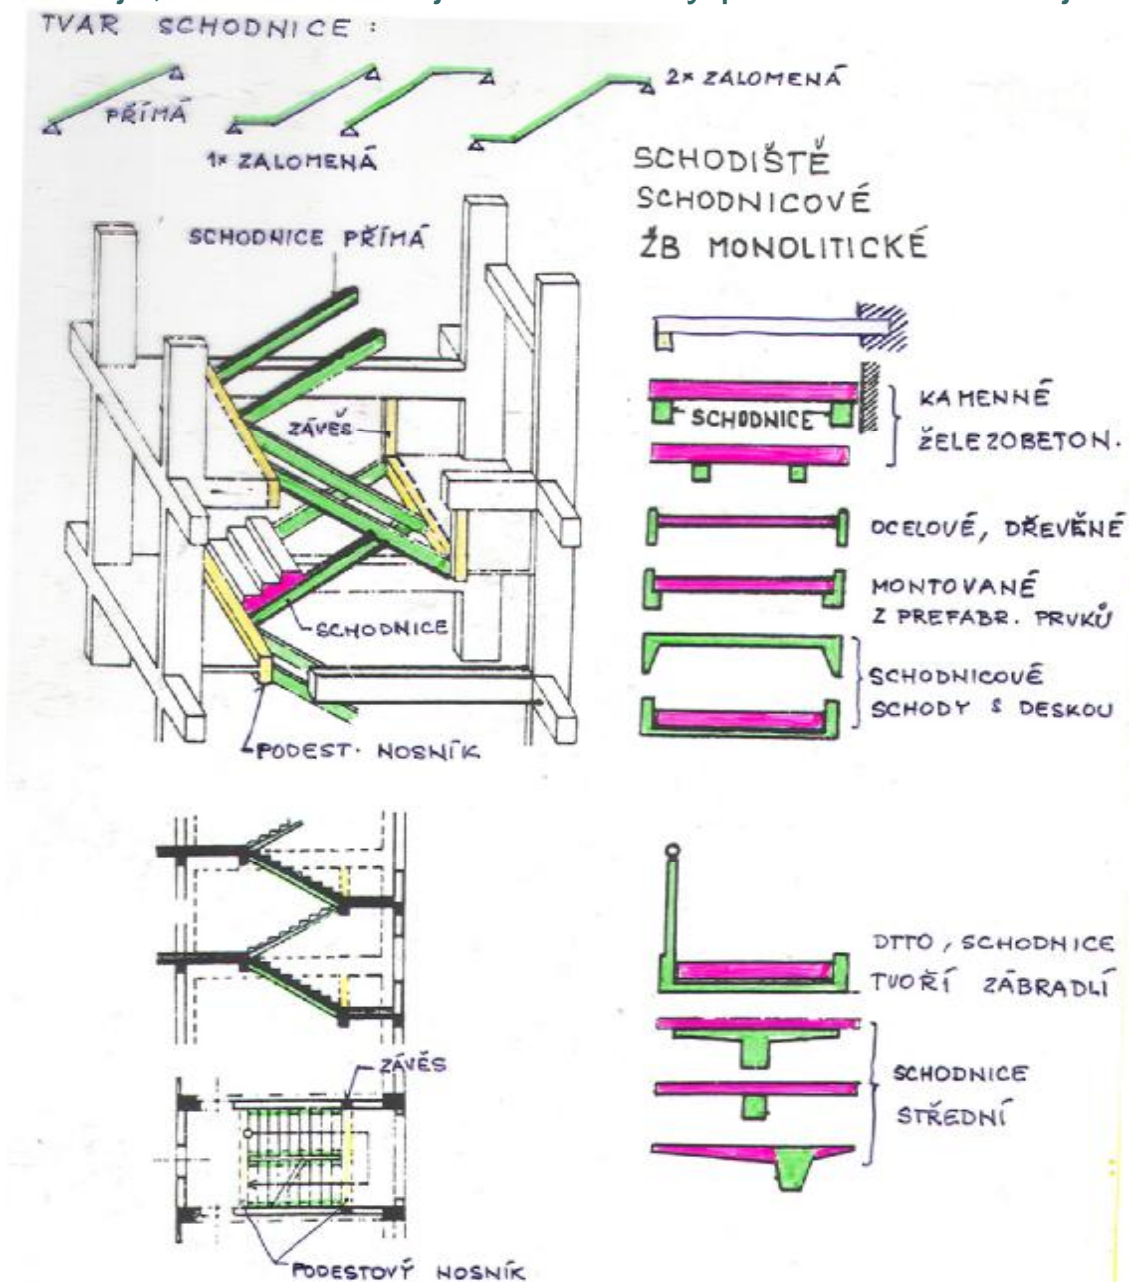 TVAR SCHODNICE :
PŘÍMÁ
1x ZALOMENÁ
2x ZALOMENÁ
SCHODIŠTĚ
SCHODNICOVÉ
ŽB MONOLITICKÉ
SCHODNICE PŘÍMÁ
ZÁVĚS
SCHODNICE
PODEST. NOSNÍK
SCHODNICE
KAMENNÉ
ŽELEZOBETON.
OCELOVÉ, DŘEVĚNÉ
MONTOVANÉ
Z PREFABR. PRVKŮ
SCHODNICOVÉ
SCHODY S DESKOU
ZÁVĚS
PODESTOVÝ NOSNÍK
DTTO, SCHODNICE
TVOŘÍ ZÁBRADLÍ
SCHODNICE
STŘEDNÍ